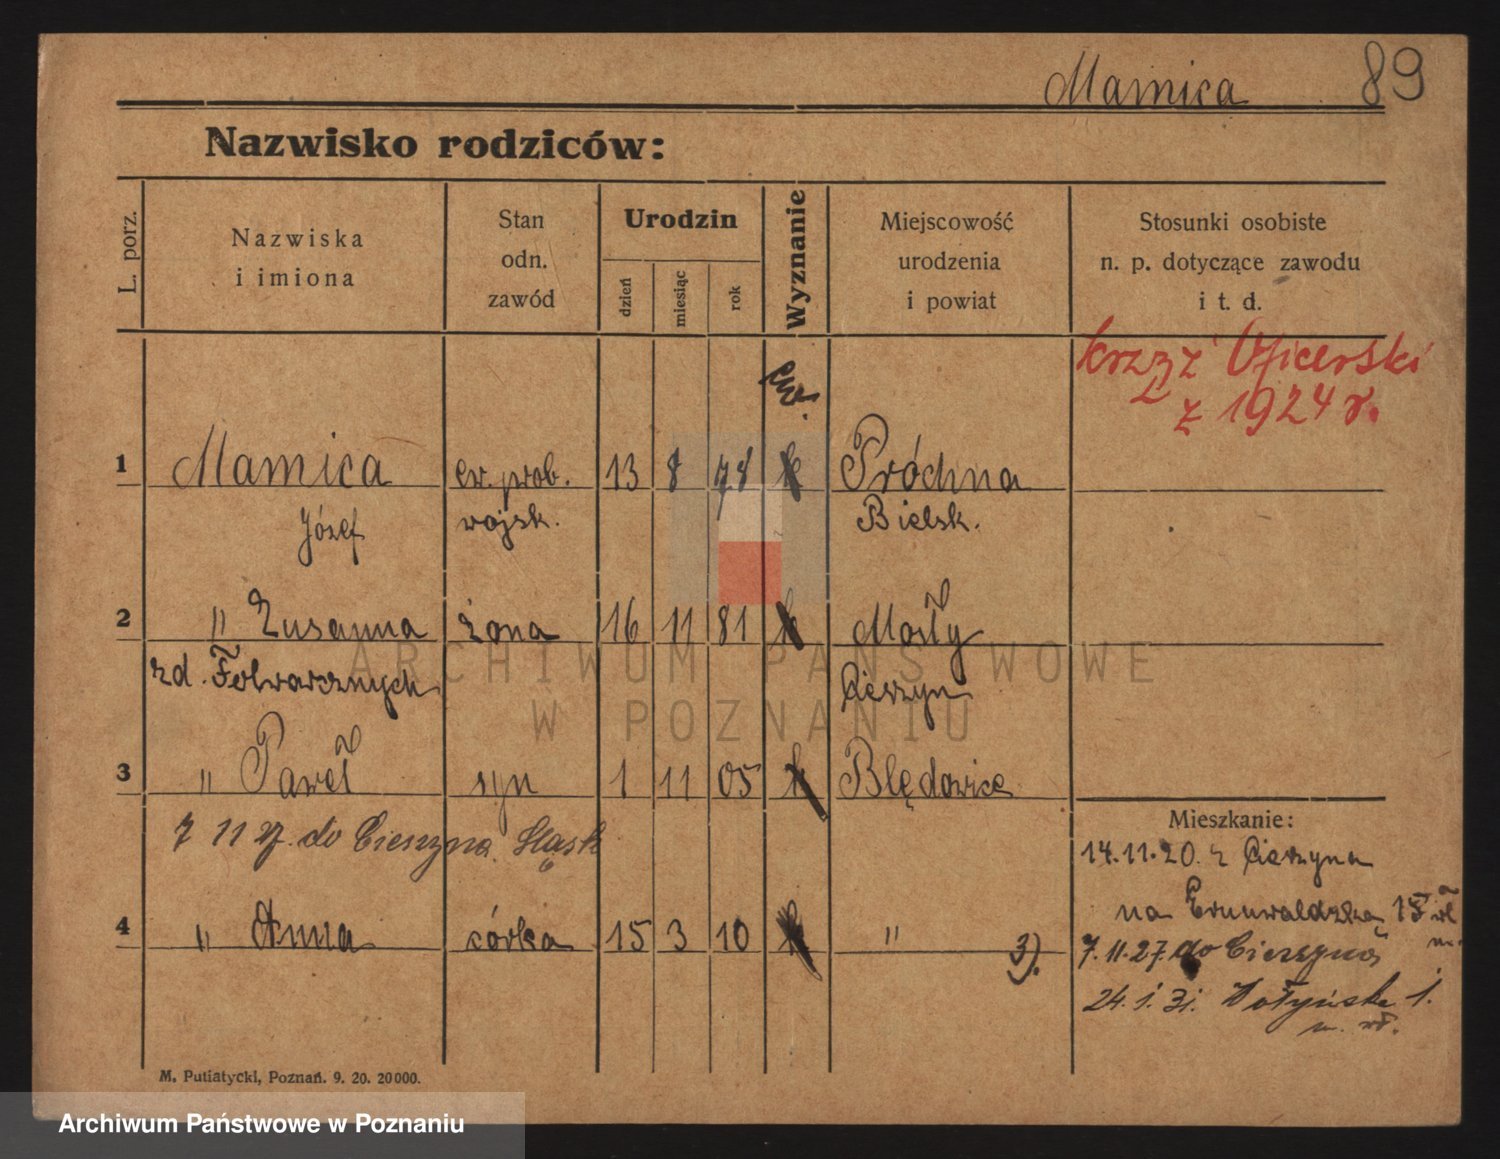 Mamica 89
Nazwisko rodziców:
L. porz.
Nazwiska
i imiona
Stan
odn.
zawód
Urodzin
dzień
miesiąc
rok
Wyznanie
Miejscowość
urodzenia
i powiat
Stosunki osobiste
n. p. dotyczące zawodu
i t. d.
krzyż Oficerski
z 1924 r.
ew.
1 Mamica ew. prob. 13 8 78 k Próchna
Józef wojsk. Bielsk.
2 " Zuzanna żona 16 11 81 k Mosty
zd. Folwarcznych Cieszyn
3 " Paweł syn 1 11 05 k Błędowice
7 11 27. do Cieszyna Śląsk
4 " Anna córka 15 3 10 k "
3).
Mieszkanie:
14.11.20. z Cieszyna
na Grunwaldzka 15 wł
m.
7.11.27. do Cieszyna
24.1.31. Wołyńska 1.
m. wł.
ARCHIWUM PAŃSTWOWE
W POZNANIU
M. Putiatycki, Poznań. 9. 20. 20000.
Archiwum Państwowe w Poznaniu